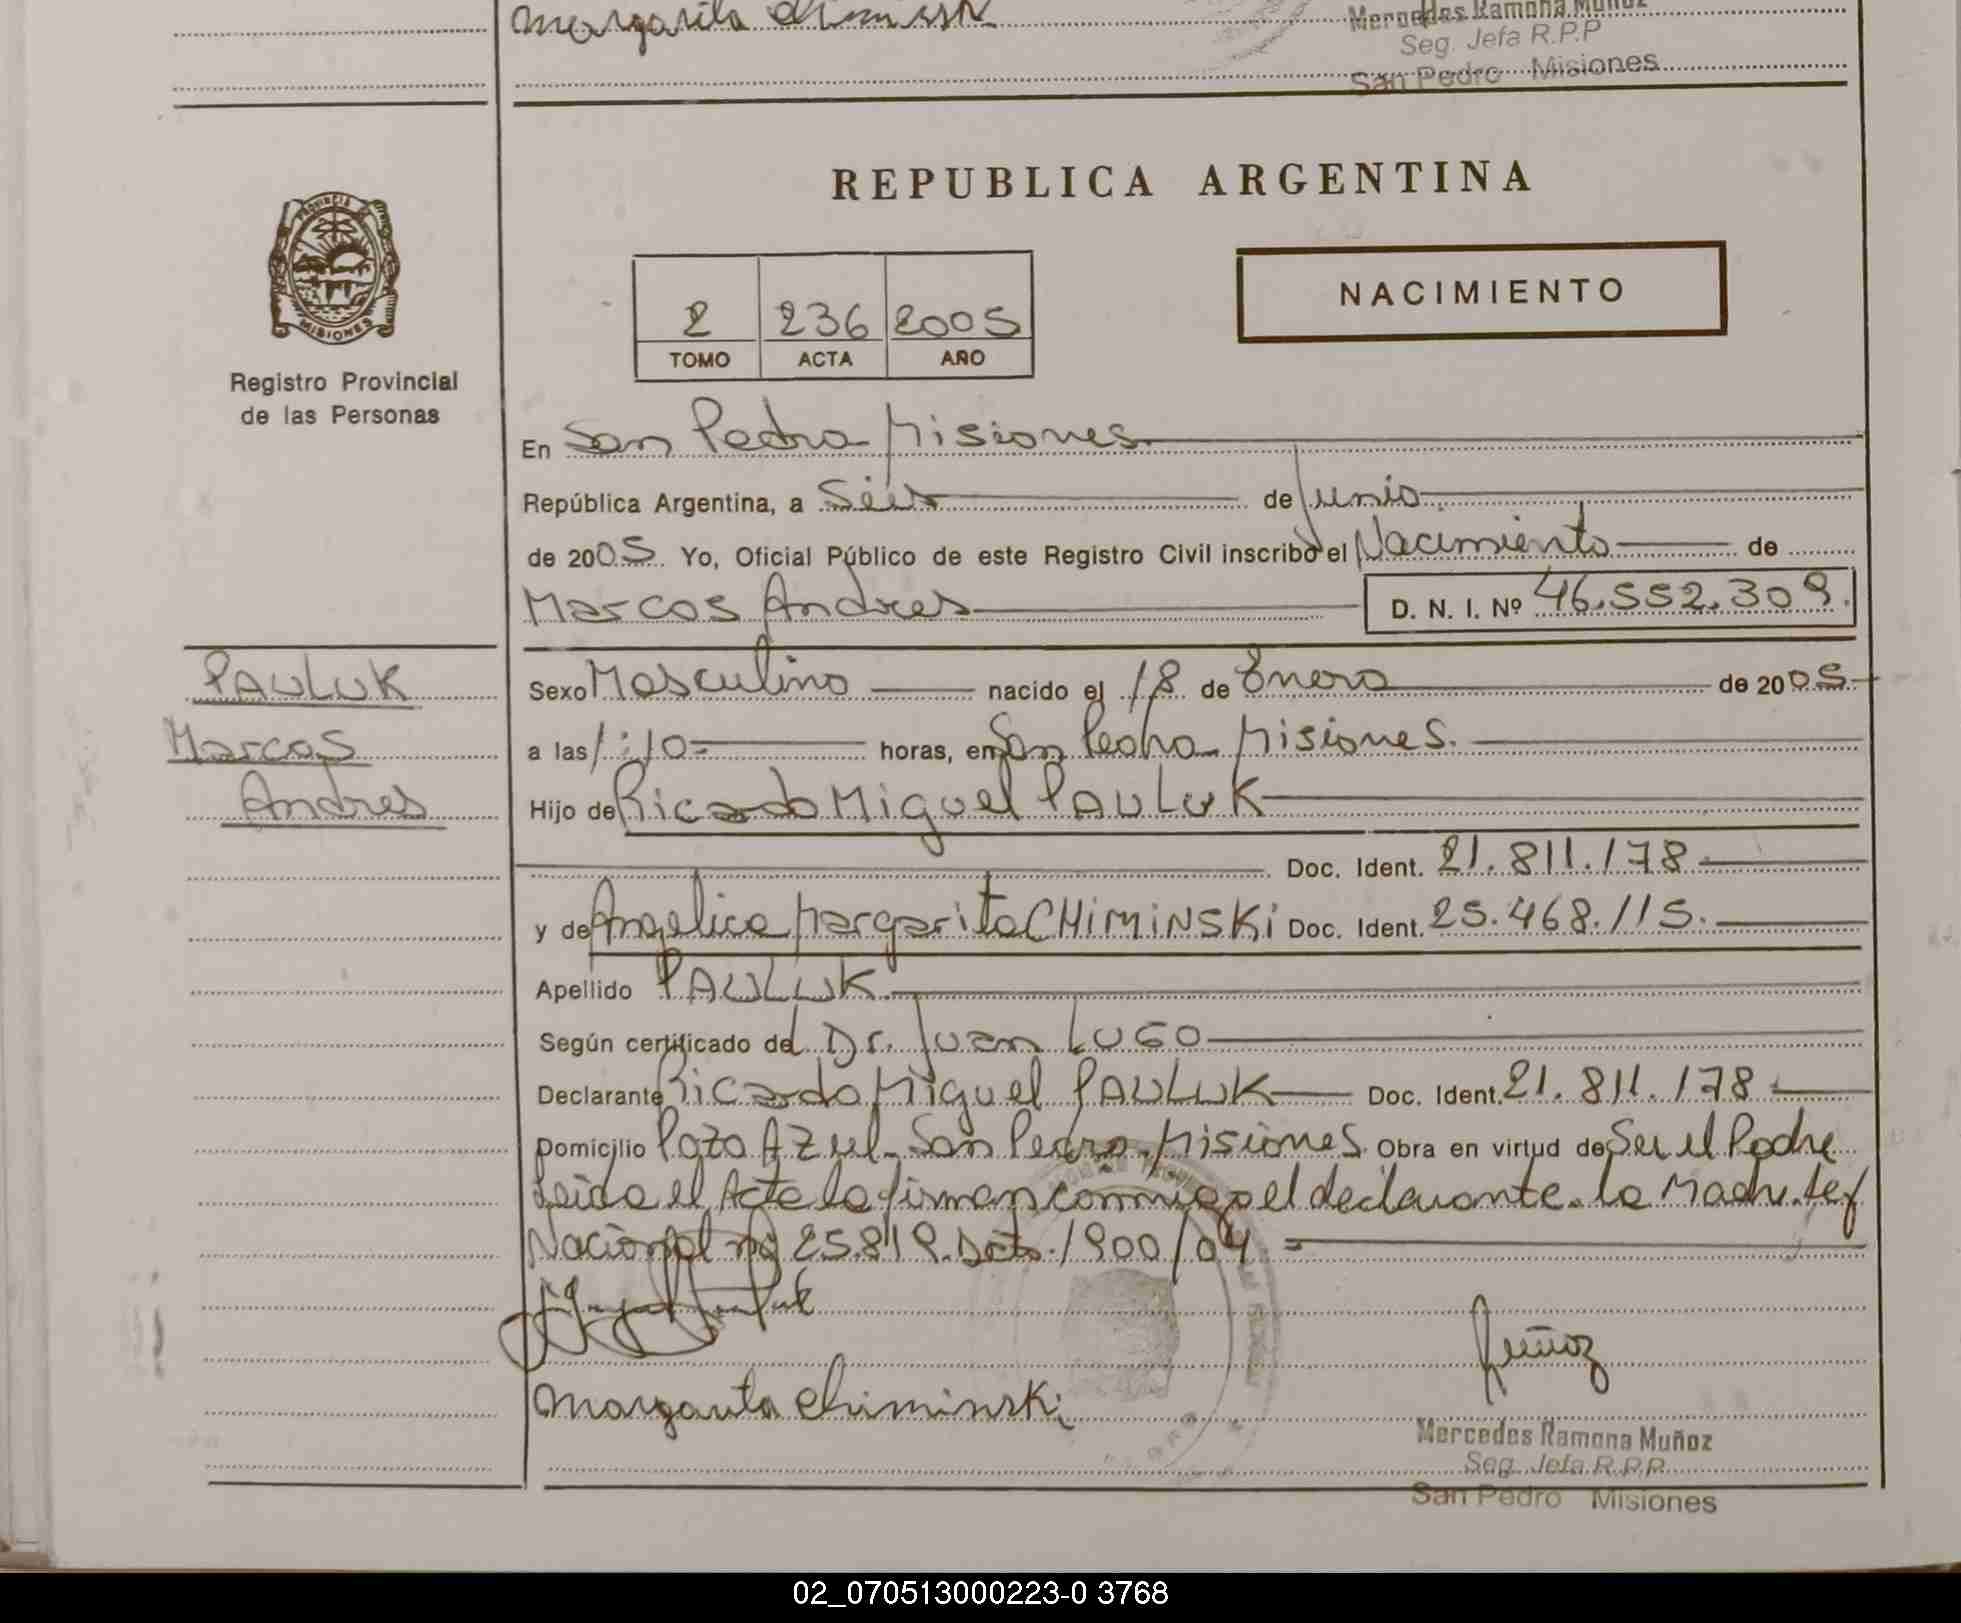 Margarita Chiminski
Mercedes Ramona Muñoz
Seg. Jefa R.P.P
San Pedro Misiones
REPUBLICA ARGENTINA
PROVINCIA DE
MISIONES
Registro Provincial
de las Personas
2 236 2005
TOMO ACTA AÑO
NACIMIENTO
En San Pedro Misiones
República Argentina, a Seis de Junio
de 2005 Yo, Oficial Público de este Registro Civil inscribo el Nacimiento de
Marcos Andres D. N. I. Nº 46.552.309.
PAULUK
Marcos
Andres
Sexo Masculino nacido el 18 de Enero de 2005
a las 1:10 horas, en San Pedro Misiones.
Hijo de Ricardo Miguel PAULUK
Doc. Ident. 21.811.178
y de Angelica Margarita CHIMINSKI Doc. Ident. 25.468.115.
Apellido PAULUK
Según certificado del Dr. Juan LUGO
Declarante Ricardo Miguel PAULUK Doc. Ident. 21.811.178
Domicilio Pozo Azul San Pedro Misiones Obra en virtud de Ser el Padre
Leida el Acta la firman conmigo el declarante. la Madre. Ley
Nacional nº 25.819. Dcto. 1900/04
Margarita Chiminski
Muñoz
Mercedes Ramona Muñoz
Seg. Jefa R.P.P
San Pedro Misiones
02_070513000223-0 3768